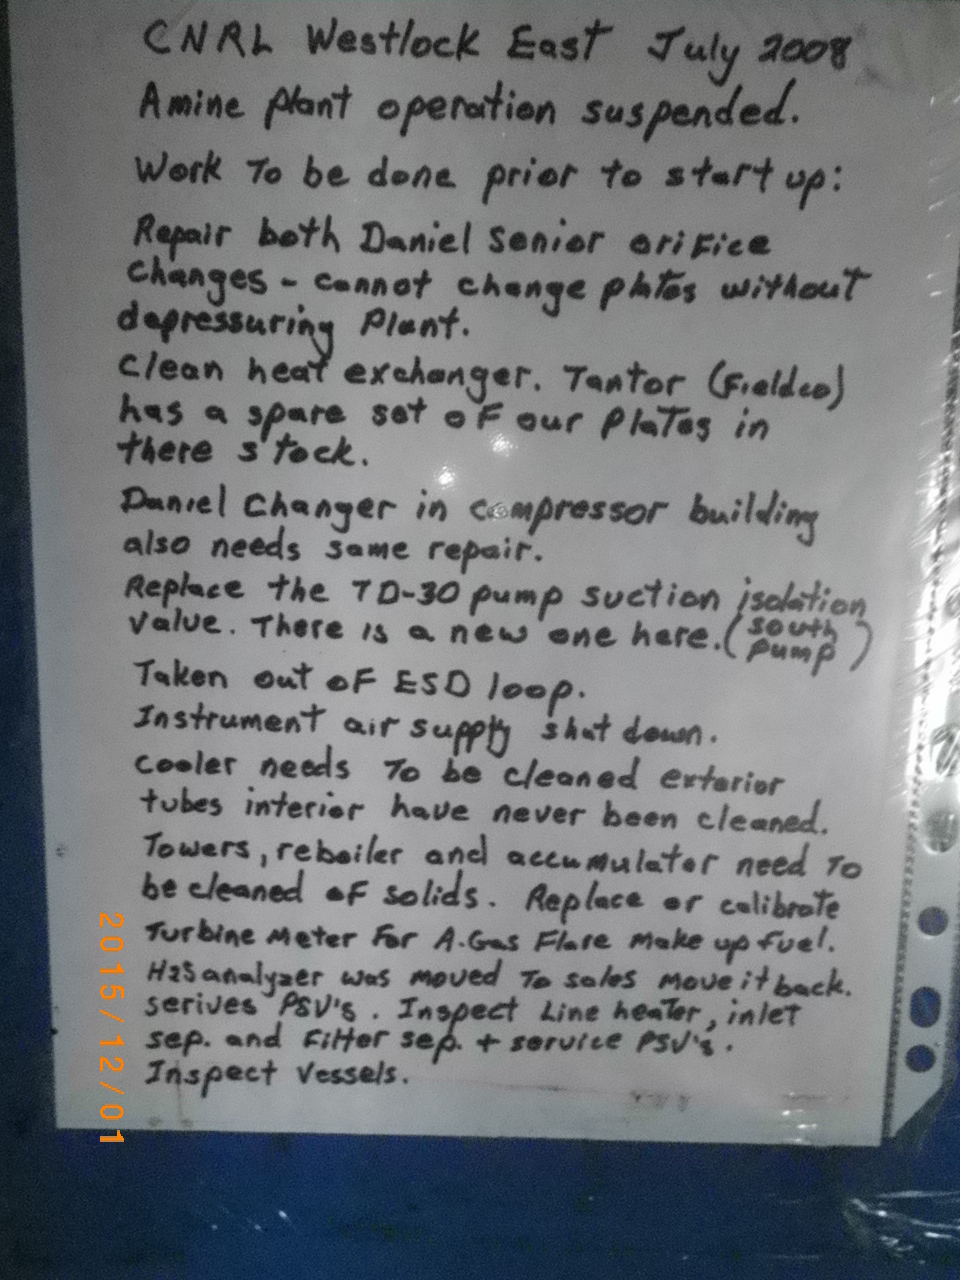 CNRL Westlock East July 2008
Amine plant operation suspended.
Work To be done prior to start up:
Repair both Daniel Senior orifice
changes - cannot change plates without
depressuring Plant.
Clean heat exchanger. Tantor (Fieldco)
has a spare set of our Plates in
there stock.
Daniel Changer in compressor building
also needs same repair.
Replace the TD-30 pump suction isolation
value. There is a new one here. (south pump)
Taken out of ESD loop.
Instrument air supply shut down.
cooler needs To be cleaned exterior
tubes interior have never been cleaned.
Towers, reboiler and accumulator need To
be cleaned of solids. Replace or calibrate
Turbine Meter For A.Gas Flare make up fuel.
H2S analyzer was moved To sales move it back.
serives PSV's. Inspect Line heater, inlet
sep. and Filter sep. + service PSV's.
Inspect Vessels.
2015/12/01